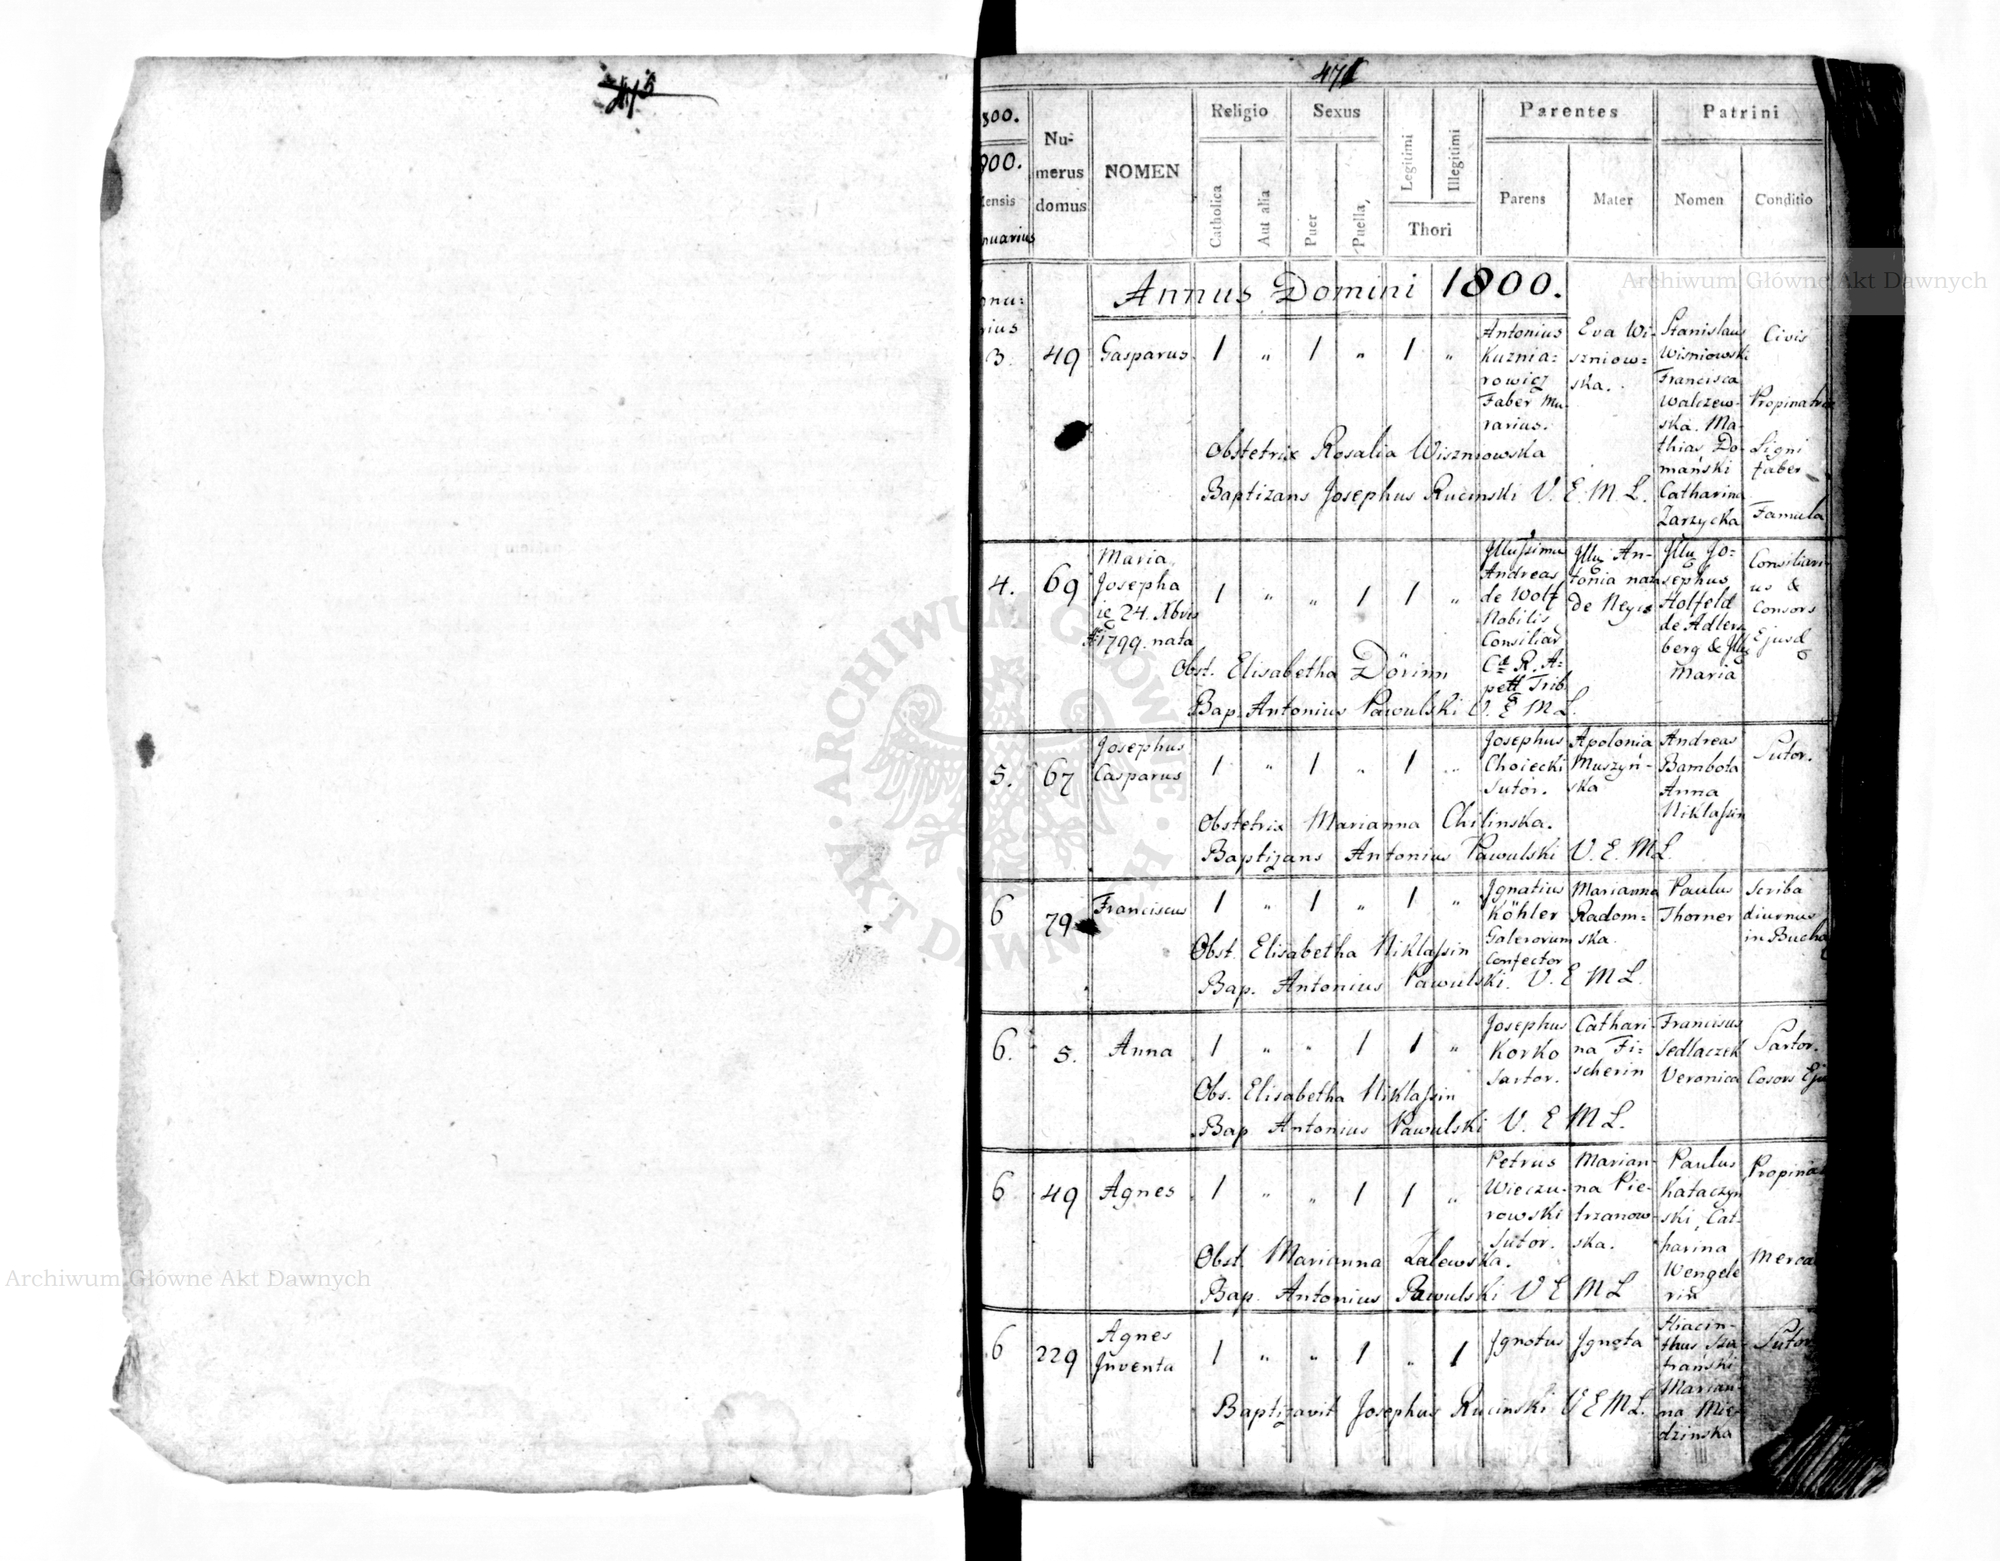 475
471
Religio Sexus Parentes Patrini
800.
900.
Mensis
Januarius
Nu-
merus
domus
NOMEN
Catholica
Aut alia
Puer
Puella,
Legitimi
Illegitimi
Thori
Parens
Mater
Nomen
Conditio
Annus Domini 1800.
Archiwum Główne Akt Dawnych
3.
49
Gasparus
1 " 1 " 1 "
Antonius
Kuznia=
rowicz
Faber Mu-
rarius.
Eva Wi-
szniow=
ska.
Stanislaus
Wisniowski
Francisca
Walczew-
ska. Ma-
thias Do-
mański
Catharina
Zarzycka
Civis
Propinatrix
Ligni
faber
Famula
Obstetrix Rosalia Wiszniowska
Baptizans Josephus Rucinski V. E. M. L.
4.
69
Maria
Josepha
24. Xbris
1799. nata
1 " " 1 1 "
Andreas
de Wolf
Nobilis
Consiliar
C. R. A=
pell Trib
An-
tonia nata
Jo=
sephus
Holfeld
de Adlers
berg &
Maria
Consiliari-
us &
Consors
Ejusd
Obst. Elisabetha Dörinn
Bap. Antonius Pawulski V. E M L.
5.
67
Josephus
Casparus
1 " 1 " 1 "
Josephus
Choiecki
Sutor.
Apolonia
Muszyń-
ska
Andreas
Bambota
Anna
Niklassin
Sutor.
Obstetrix Marianna Chilinska.
Baptizans Antonius Pawulski V. E. M L.
6
79
Franciscus
1 " 1 " 1 "
Ignatius
Köhler
Galerorum
Confector
Marianna
Radom=
ska.
Paulus
Thorner
Scriba
diurnus
in Buchh
Obst. Elisabetha Niklassin
Bap. Antonius Pawulski. V. E M L.
6.
5.
Anna
1 " " 1 1 "
Josephus
Korko
Sartor.
Cathari-
na Fi=
scherin
Franciscus
Sedlaczek
Veronica
Sartor.
Cosors Eju
Obs. Elisabetha Niklassin
Bap Antonius Pawulski V. E M L.
6
49
Agnes
1 " " 1 1 "
Petrus
Wieczu-
rowski
Sutor.
Marian-
na Pie-
trzanow-
ska.
Paulus
Kataczyn
ski, Cat-
harina
Wengele
rin
Propina
Merca
Obst. Marianna Zalewska.
Bap. Antonius Pawulski V E M L
6
229
Agnes
Inventa
1 " " 1 " 1
Ignotus
Ignota
Hiacin-
thus Sza-
trański
Marian-
na Mie-
dzinska
Sutor
Baptizavit Josephus Rucinski V E M L.
ARCHIWUM GŁÓWNE · AKT DAWNYCH ·
Archiwum Główne Akt Dawnych